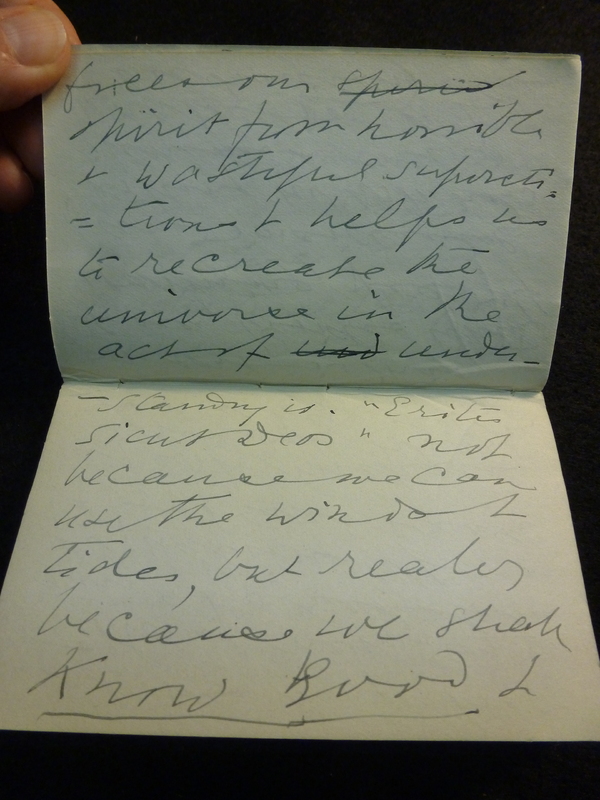 frees our spirit
spirit from horrible
& wasteful supersti=
=tions & helps us
to recreate the
universe in the
act of und under-
-standing is. "Eritis
sicut Deos" not
because we can
use the winds &
tides, but really
because we shall
Know Good &